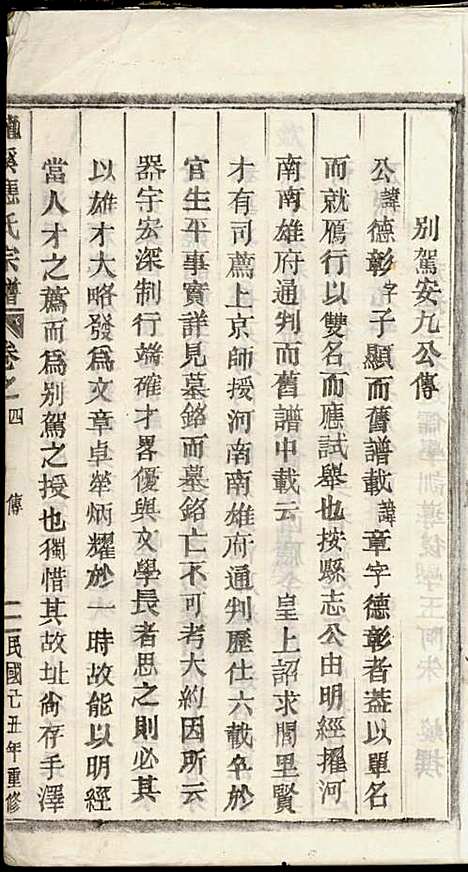 別駕安九公傳
公諱德彰字子顯而舊譜載諱章字德彰者葢以單名
而就鴈行以雙名而應試舉也按縣志公由明經擢河
南南雄府通判而舊譜中載云 皇上詔求閭里賢
才有司薦上京師授河南南雄府通判歷仕六載卒於
官生平事實詳見墓銘而墓銘亡不可考大約因所云
器宇宏深制行端確才畧優與文學長者思之則必其
以雄才大略發爲文章卓犖炳耀於一時故能以明經
當人才之薦而爲別駕之授也獨惜其故址尙存手澤
溪應氏宗譜 卷之四 傳 二 民國丑年重修